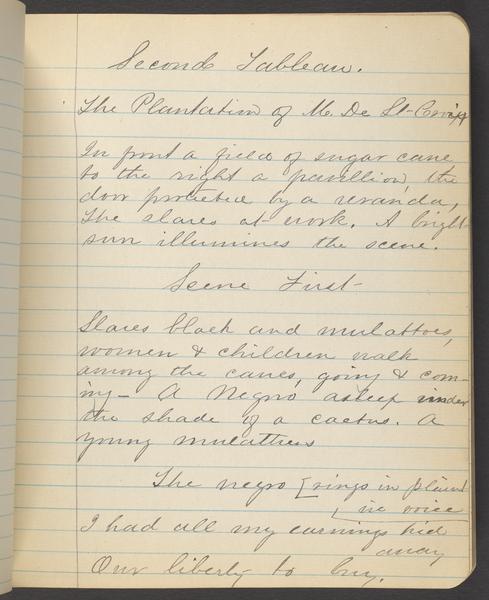 Second Tableau.
The Plantation of M. De St-Croix
In front a field of sugar cane,
to the right a pavillion, the
door protected by a veranda,
The slaves at work. A bright
sun illumines the scene.
Scene First-
Slaves black and mulattoes,
women & children walk
among the canes, going & com-
ing - A Negro asleep under
the shade of a cactus. A
young mulattress
The negro [sings in plaint
ive voice
I had all my earnings hid
away
Our liberty to buy.